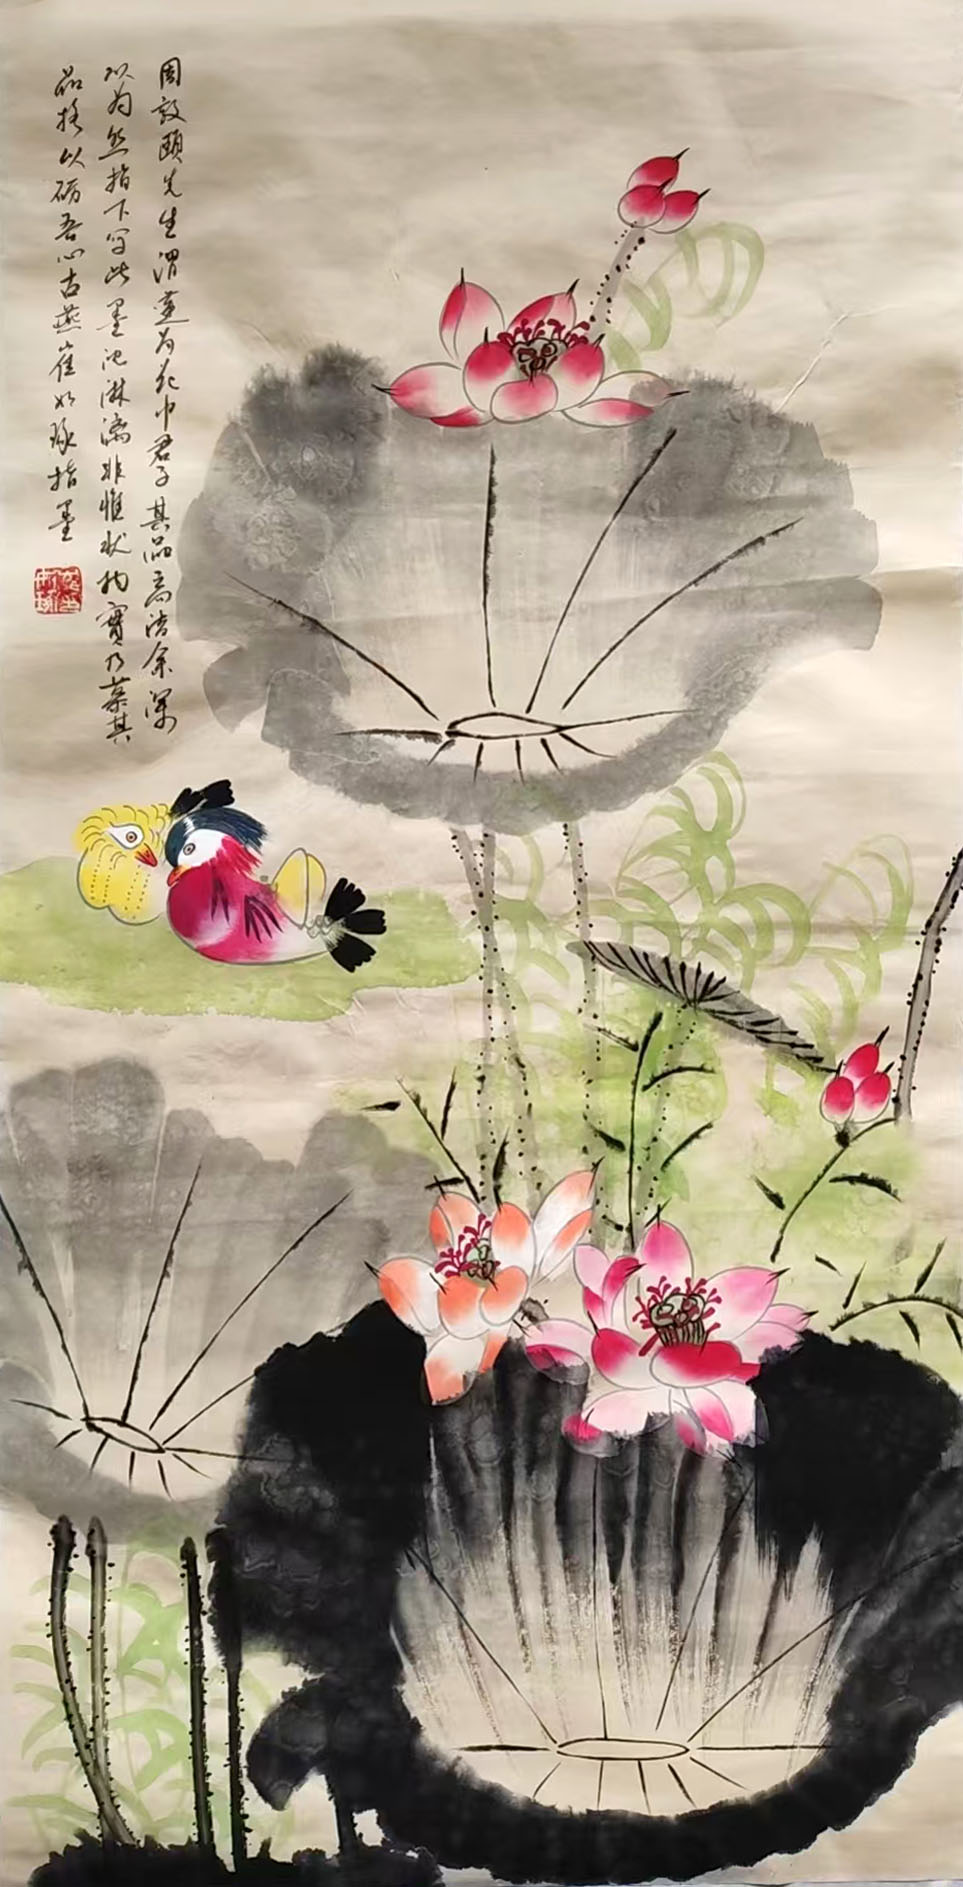 周敦颐先生谓莲为花中君子其品高洁余深
以为然指下写此墨沈淋漓非惟状物實乃慕其
品格以砺吾心古燕崔如琢指墨